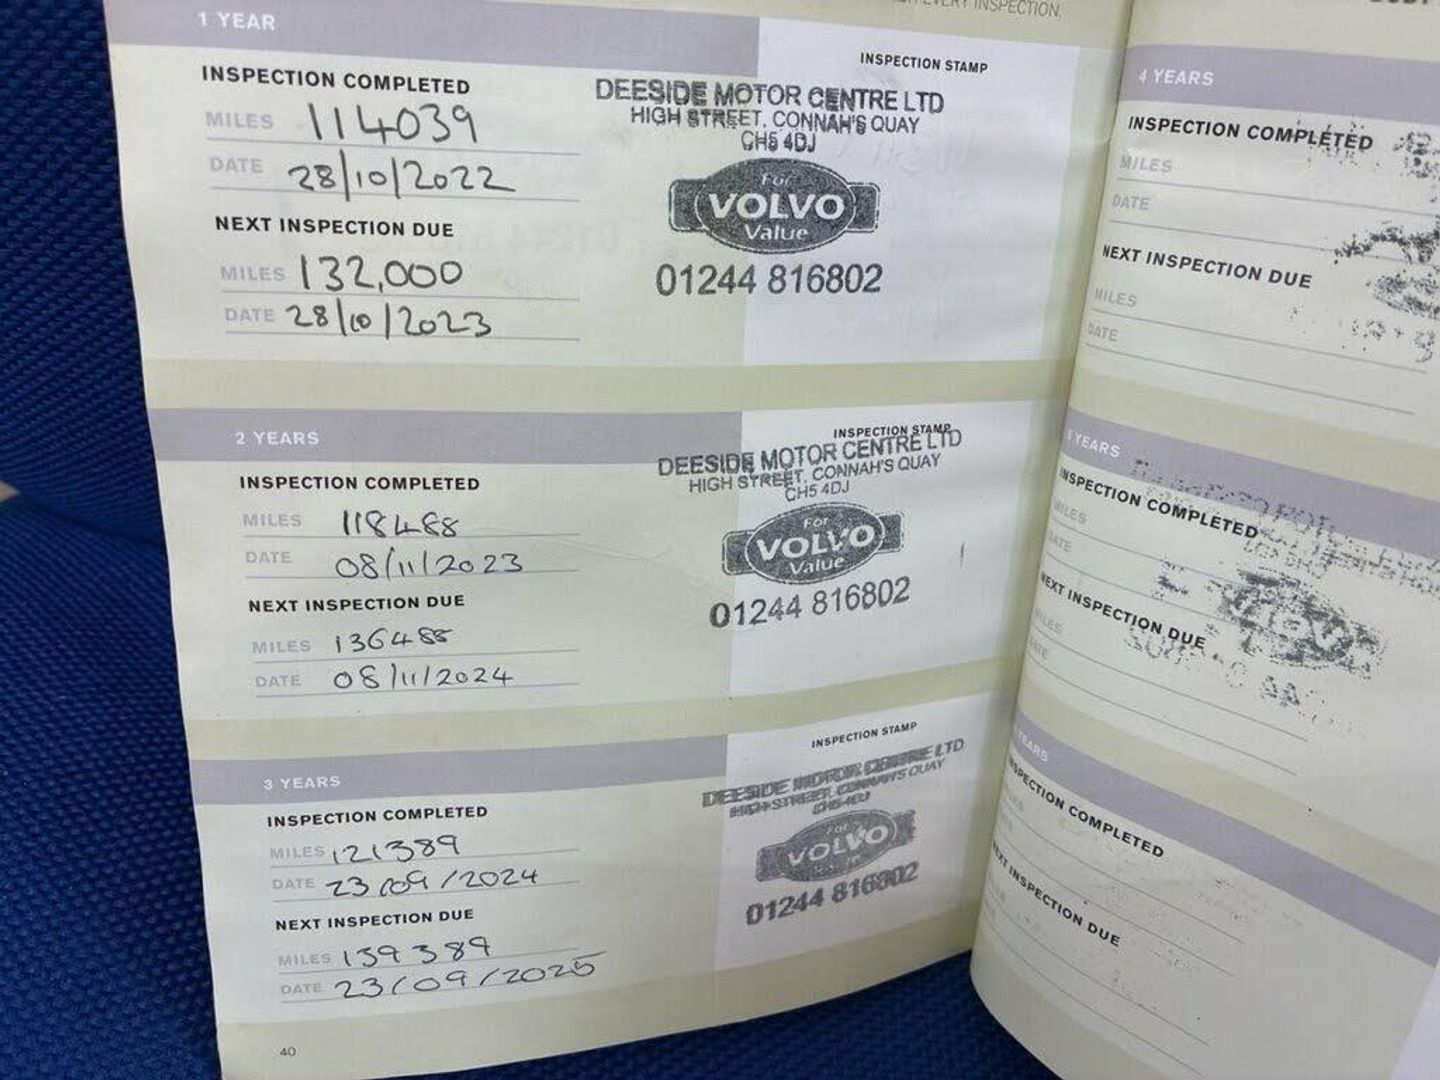 EVERY INSPECTION.
1 YEAR
INSPECTION STAMP
INSPECTION COMPLETED
MILES 114039
DATE 28/10/2022
NEXT INSPECTION DUE
MILES 132,000
DATE 28/10/2023
DEESIDE MOTOR CENTRE LTD
HIGH STREET, CONNAH'S QUAY
CH5 4DJ
For
VOLVO
Value
01244 816802
2 YEARS
INSPECTION STAMP
INSPECTION COMPLETED
MILES 118488
DATE 08/11/2023
NEXT INSPECTION DUE
MILES 136488
DATE 08/11/2024
DEESIDE MOTOR CENTRE LTD
HIGH STREET, CONNAH'S QUAY
CH5 4DJ
For
VOLVO
Value
01244 816802
3 YEARS
INSPECTION STAMP
INSPECTION COMPLETED
MILES 121389
DATE 23/09/2024
NEXT INSPECTION DUE
MILES 139389
DATE 23/09/2025
DEESIDE MOTOR CENTRE LTD
HIGH STREET, CONNAH'S QUAY
CH5 4DJ
For
VOLVO
01244 816802
40
4 YEARS
INSPECTION COMPLETED
MILES
DATE
NEXT INSPECTION DUE
MILES
DATE
YEARS
INSPECTION COMPLETED
MILES
DATE
NEXT INSPECTION DUE
MILES
DATE
YEARS
INSPECTION COMPLETED
NEXT INSPECTION DUE